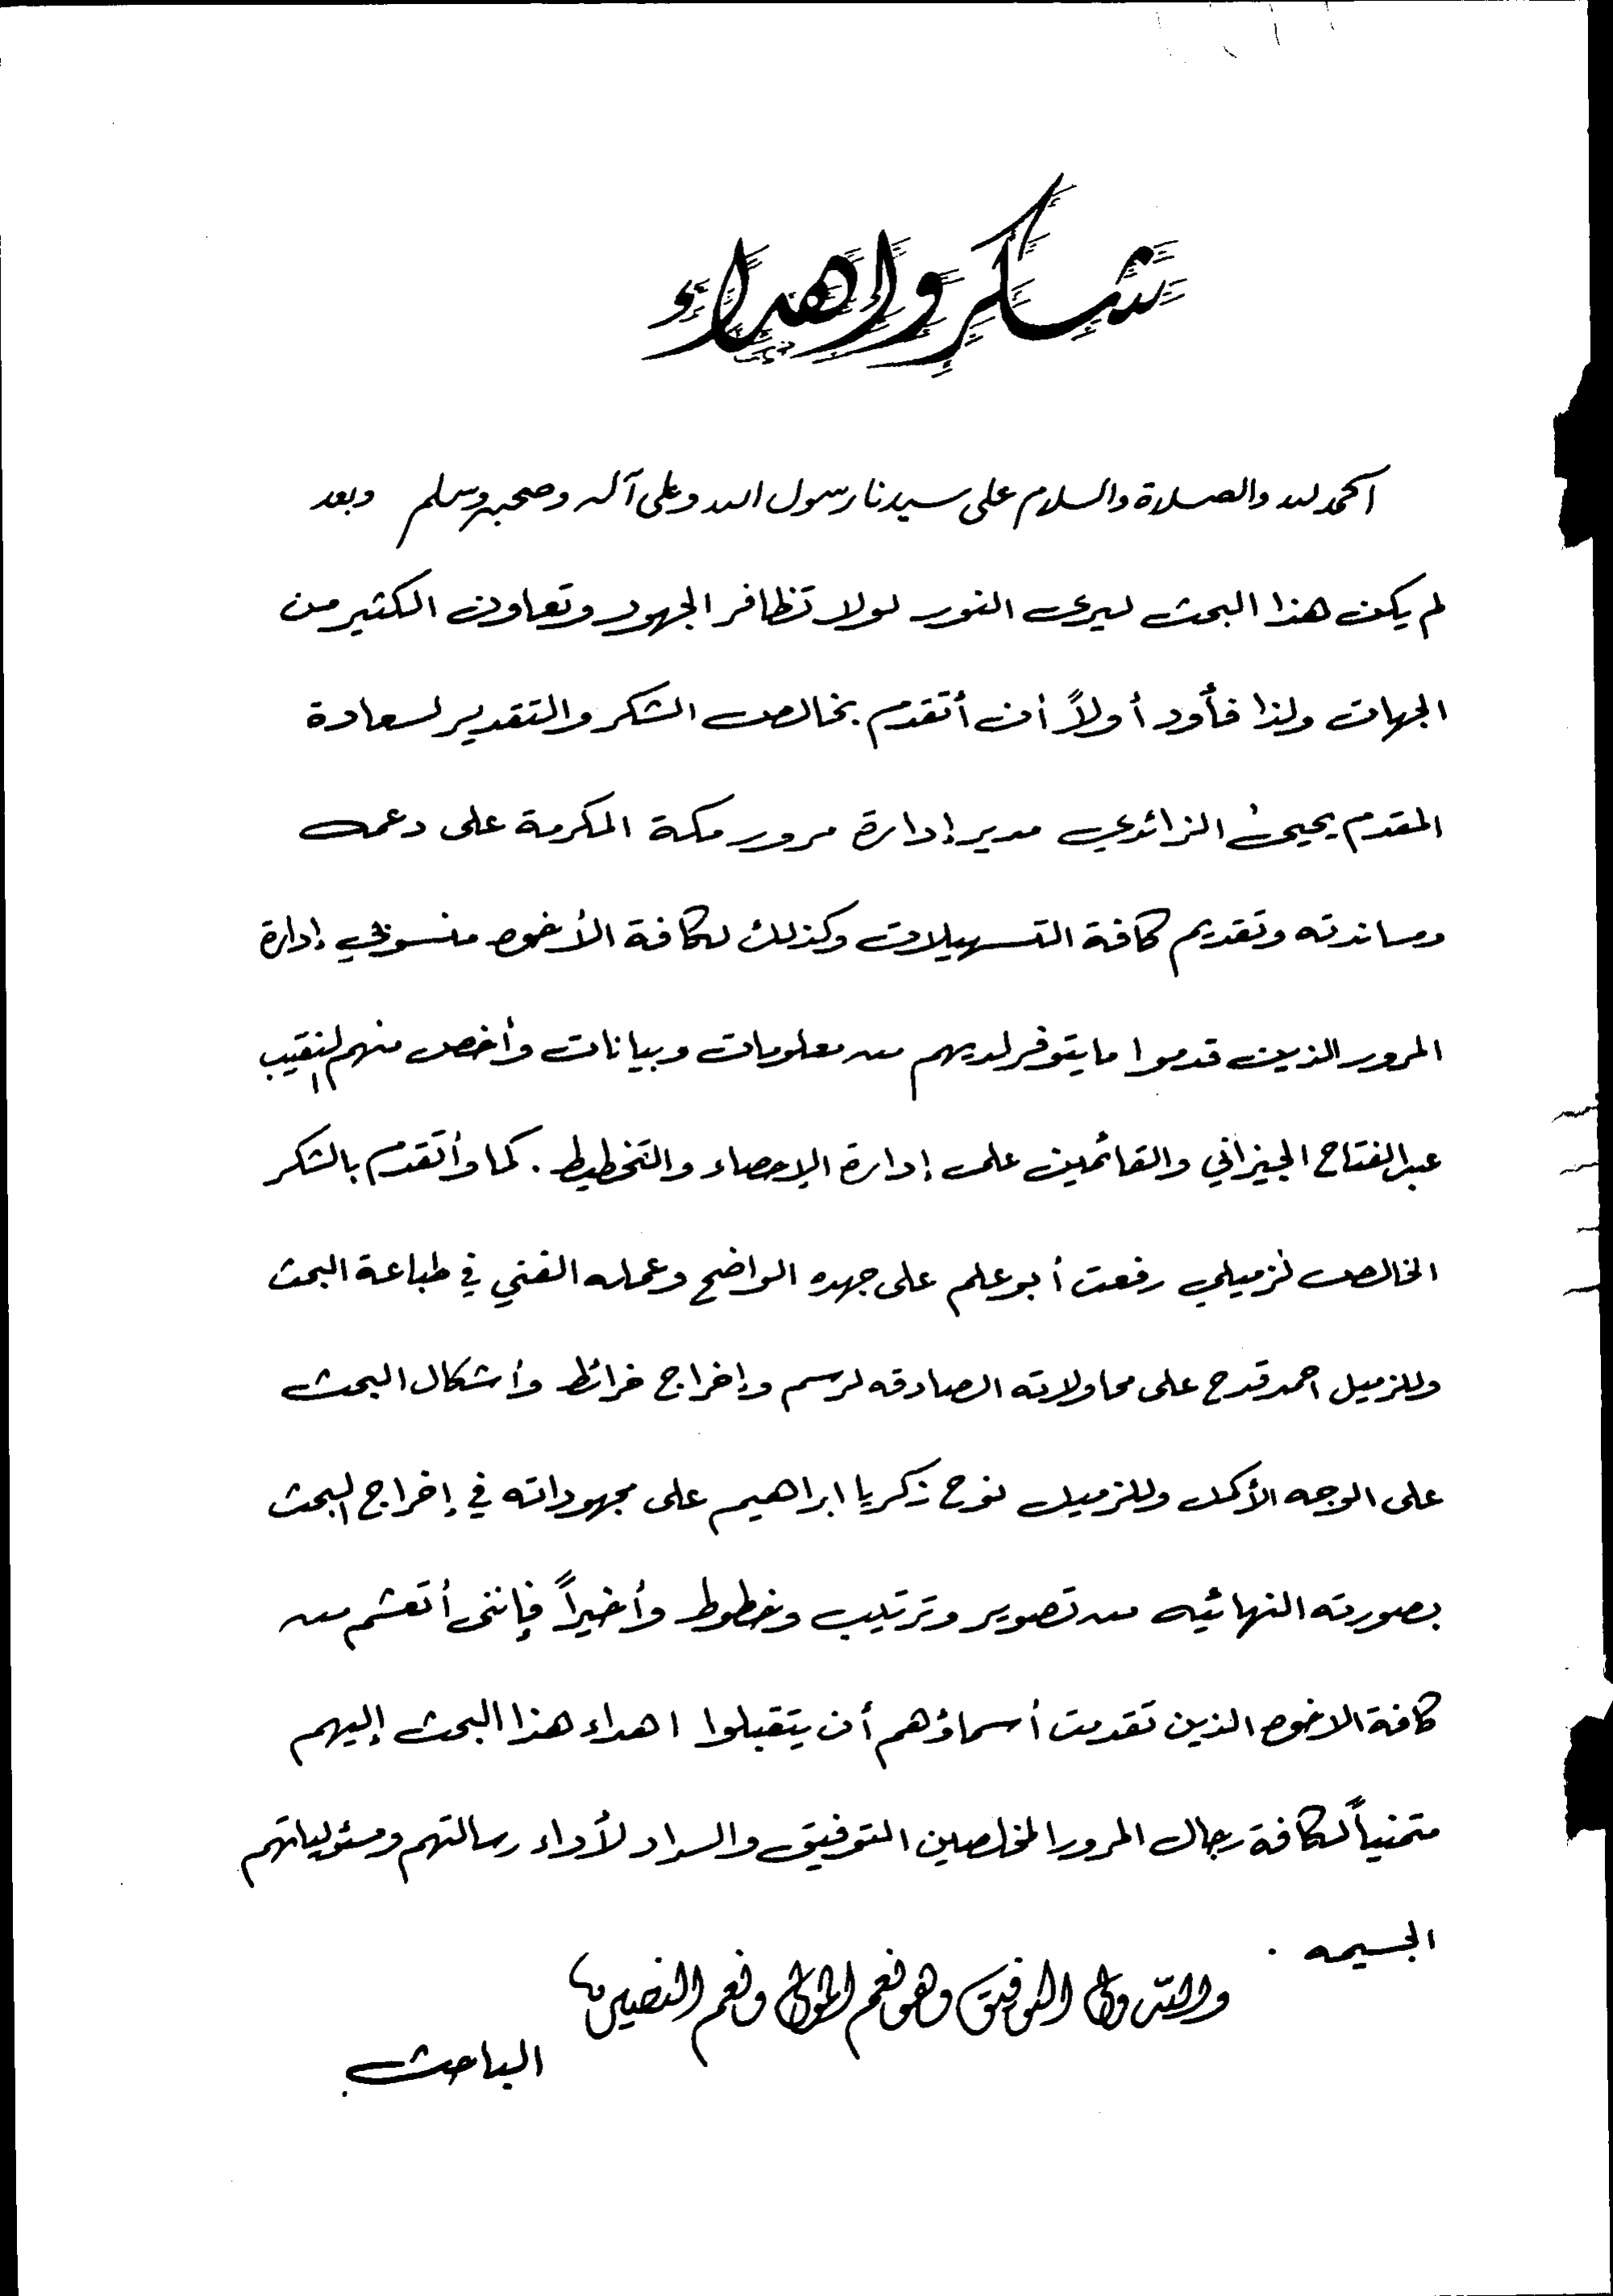 شكر وإهداء
الحمد لله والصلاة والسلام على سيدنا رسول الله وعلى آله وصحبه وسلم وبعد
لم يكن هذا البحث ليرى النور لولا تظافر الجهود وتعاون الكثير من
الجهات ولذا فأود أولاً أن أتقدم بخالص الشكر والتقدير لسعادة
المقدم يحيى الزائدي مدير إدارة مرور مكة المكرمة على دعمه
ومساندته وتقديم كافة التسهيلات وكذلك لكافة الأخوه منسوبي إدارة
المرور الذين قدموا ما يتوفر لديهم من معلومات وبيانات وأخص منهم النقيب
عبد الفتاح الجيزاني والقائمين على إدارة الإحصاء والتخطيط. كما وأتقدم بالشكر
الخالص لزميلي رفعت أبو علم على جهده الواضح وعمله الفني في طباعة البحث
وللزميل احمد قدح على محاولاته الصادقه لرسم وإخراج خرائط وأشكال البحث
على الوجه الأكمل وللزميل نوح زكريا ابراهيم على مجهوداته في إخراج البحث
بصورته النهائيه من تصوير وترتيب وخطوط وأخيراً فإننى أتعشم من
كافة الاخوه الذين تقدمت أسماؤهم أن يتقبلوا اهداء هذا البحث إليهم
متمنياً لكافة رجال المرور المخلصين التوفيق والسداد لأداء رسالتهم ومسئولياتهم
الجسيمه .
والله ولى التوفيق وهو نعم المولى ونعم النصير
الباحث